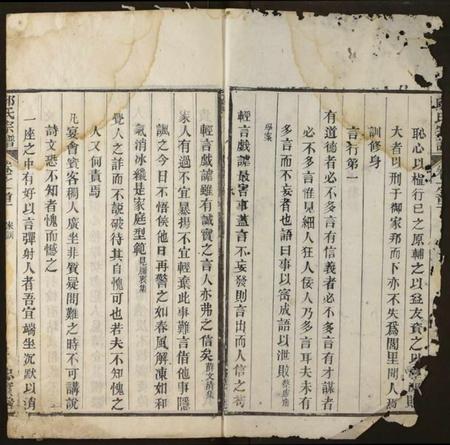 恥心以植行己之原輔之以益友資之以
大者以刑于御家邦而下亦不失為閭里間人
訓修身
言行第一
有道德者必不多言有信義者必不多言有才謀者
必不多言惟見細人狂人佞人乃多言耳夫未有
多言而不妄者也語曰事以密成語以泄敗
學案
輕言戲謔最害事蓋言不妄發則言出而人信之苟
輕言戲謔雖有誠實之言人亦弗之信矣薛文清集
家人有過不宜暴揚不宜輕棄此事難言借他事隱
諷之今日不悟俟他日再警之如春風解凍如和
氣消冰纔是家庭型範
覺人之詐而不說破待其自愧可也若夫不知愧之
人又何責焉
凡宴會賓客稠人廣坐非質疑問難之時不可講說
詩文恐不知者愧而憾之
一座之中有好以言彈射人者吾宜端坐沉默以消
氏宗譜
家訓